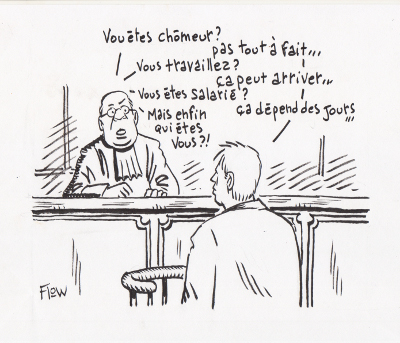 Vou êtes chômeur?
pas tout à fait...
Vous travaillez?
ça peut arriver...
Vous êtes salarié?
ça dépend des jours...
Mais enfin
qui êtes
vous?!
Flow